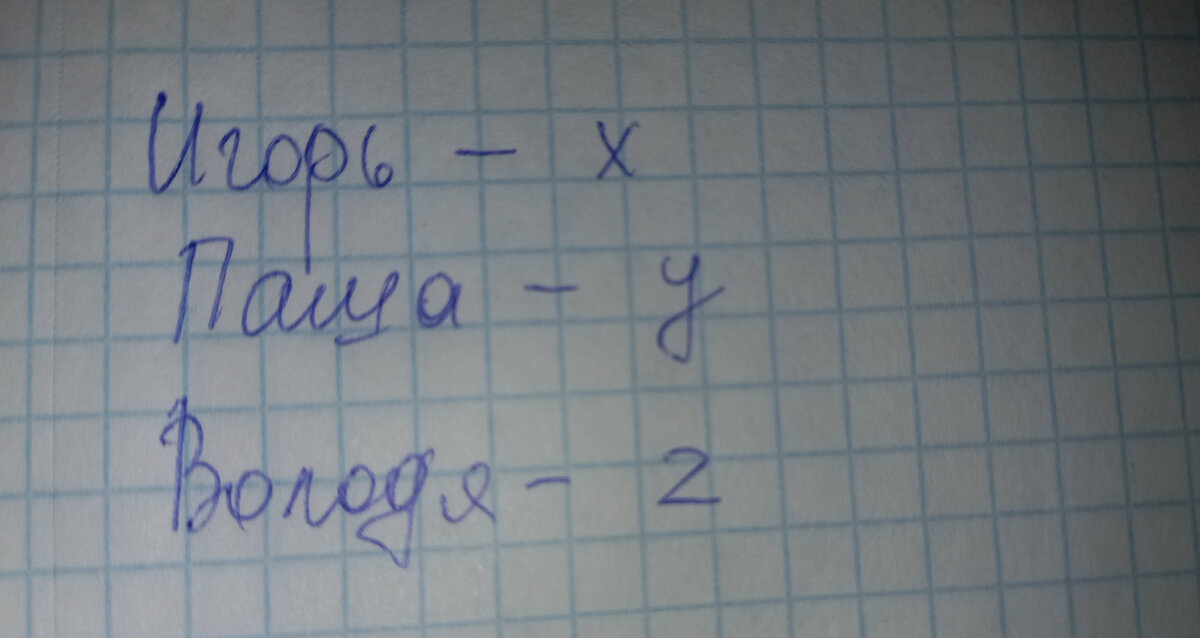 Игорь - x
Паша - y
Володя - z